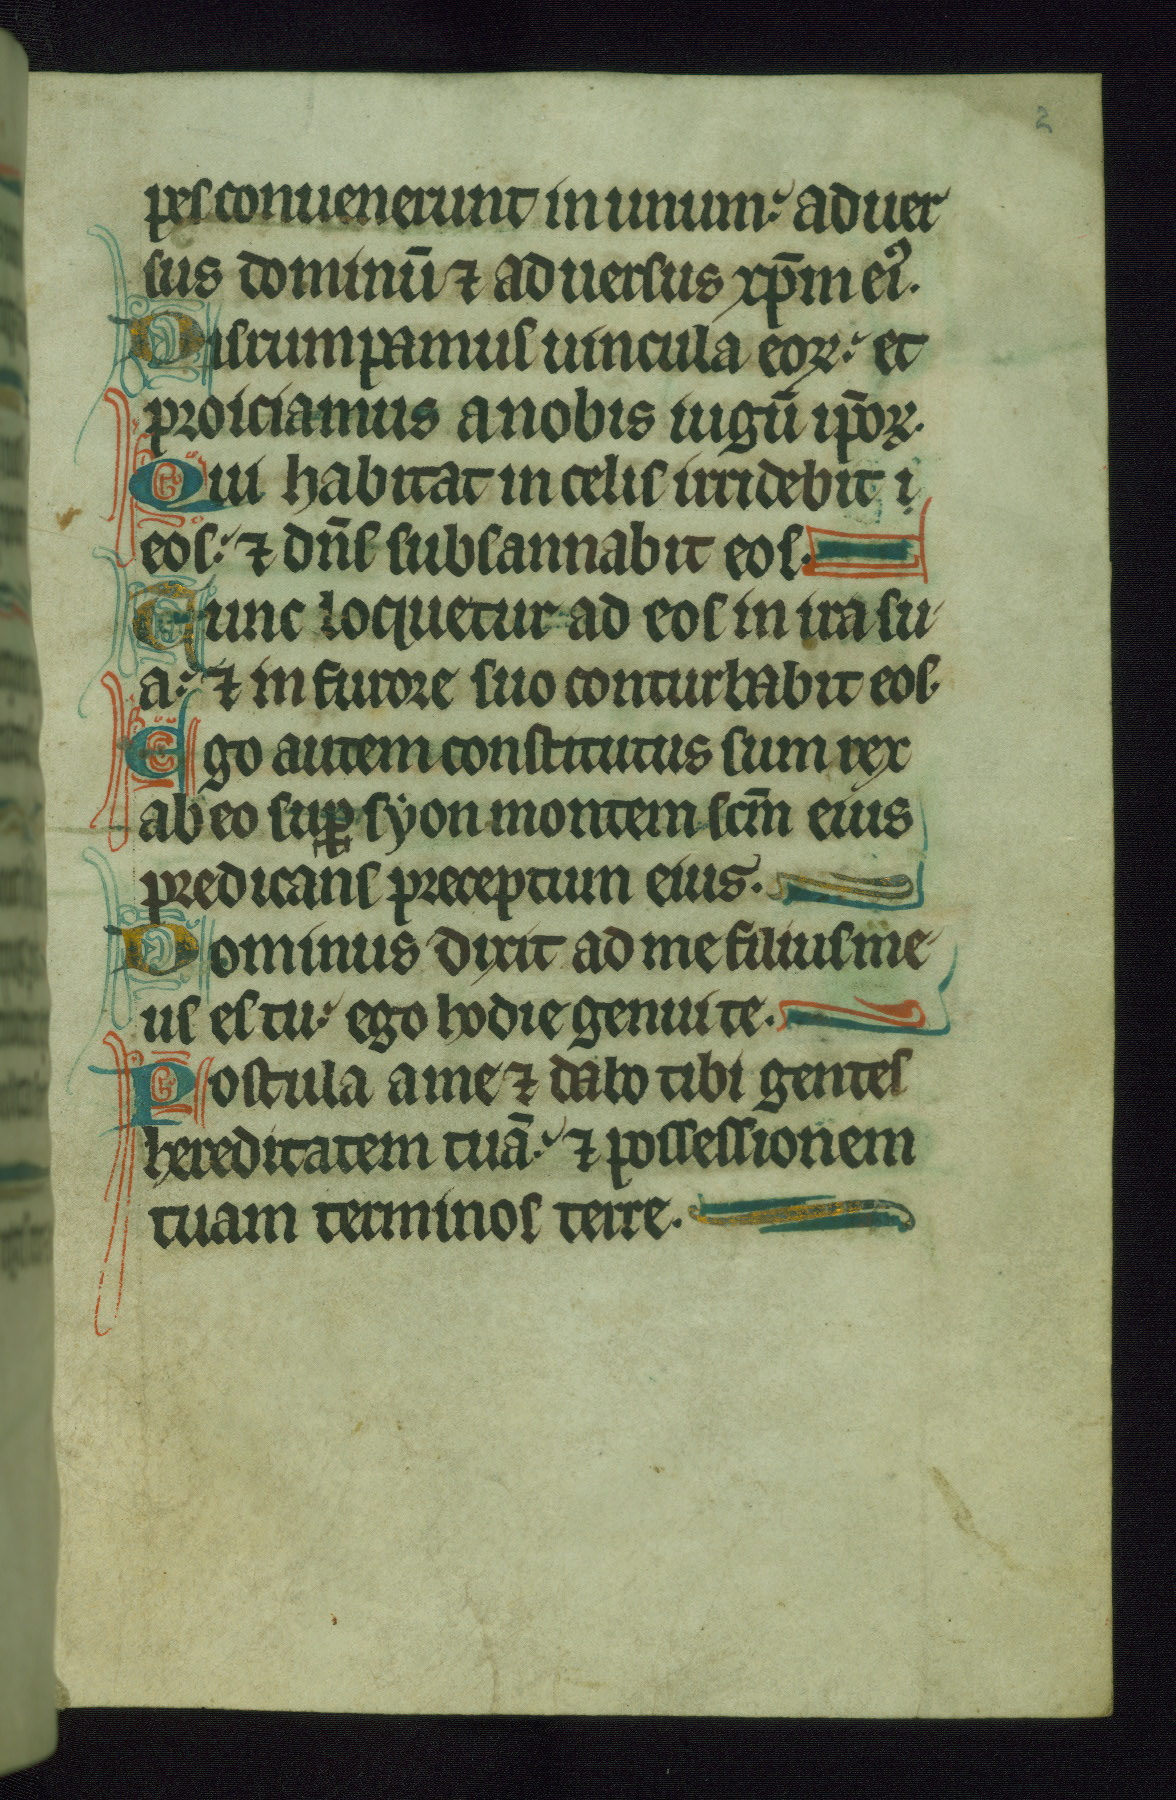 2
pes conuenerunt in unum: aduer
sus dominū ⁊ aduersus xp̄m eiꝰ.
Disrumpamus uincula eoꝝ: et
proiciamus a nobis iugū ip̄oꝝ.
Qui habitat in celis irridebit i
eos: ⁊ dn̄s subsannabit eos.
Tunc loquetur ad eos in ira su
a: ⁊ in furore suo conturbabit eos.
Ego autem constitutus sum rex
ab eo suꝑ syon montem scm̄ eius
predicans preceptum eius.
Dominus dixit ad me filius me
us es tu: ego hodie genui te.
Postula a me ⁊ dabo tibi gentes
hereditatem tuā: ⁊ possessionem
tuam terminos terre.